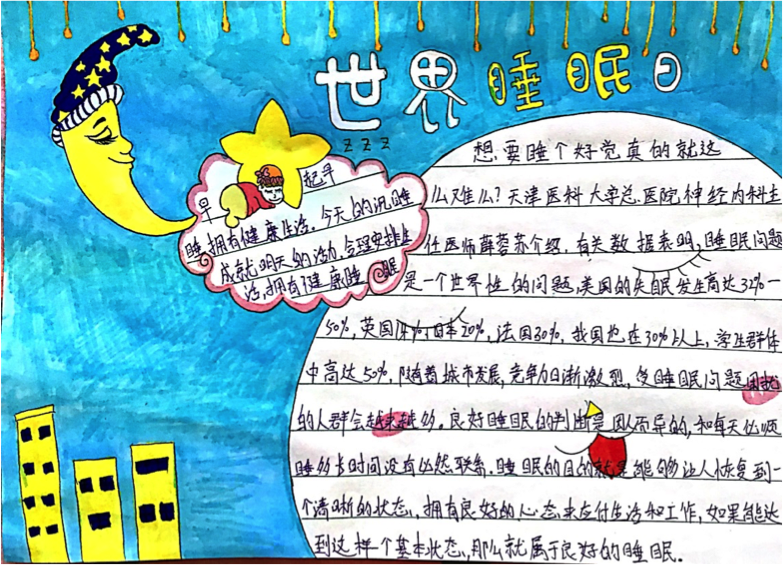 世界睡眠日
z z z
早 起早
睡,拥有健康生活。今天的沉睡
成就明天的活力,合理安排生
活,拥有健康睡眠
想要睡个好觉真的就这
么难么?天津医科大学总医院神经内科主
任医师薛蓉苏介绍,有关数据表明,睡眠问题
是一个世界性的问题,美国的失眠发生高达32%—
50%,英国 日本20%,法国30%,我国也在30%以上,学生群体
中高达50%,随着城市发展,竞争力日渐激烈,受睡眠问题困扰
的人群会越来越多。良好睡眠的判断是因人而异的,和每天
睡多长时间没有必然联系,睡眠的目的就是能够让人恢复到一
个清晰的状态,拥有良好的心态来应付生活和工作,如果能达
到这样个基本状态,那么就属于良好的睡眠.